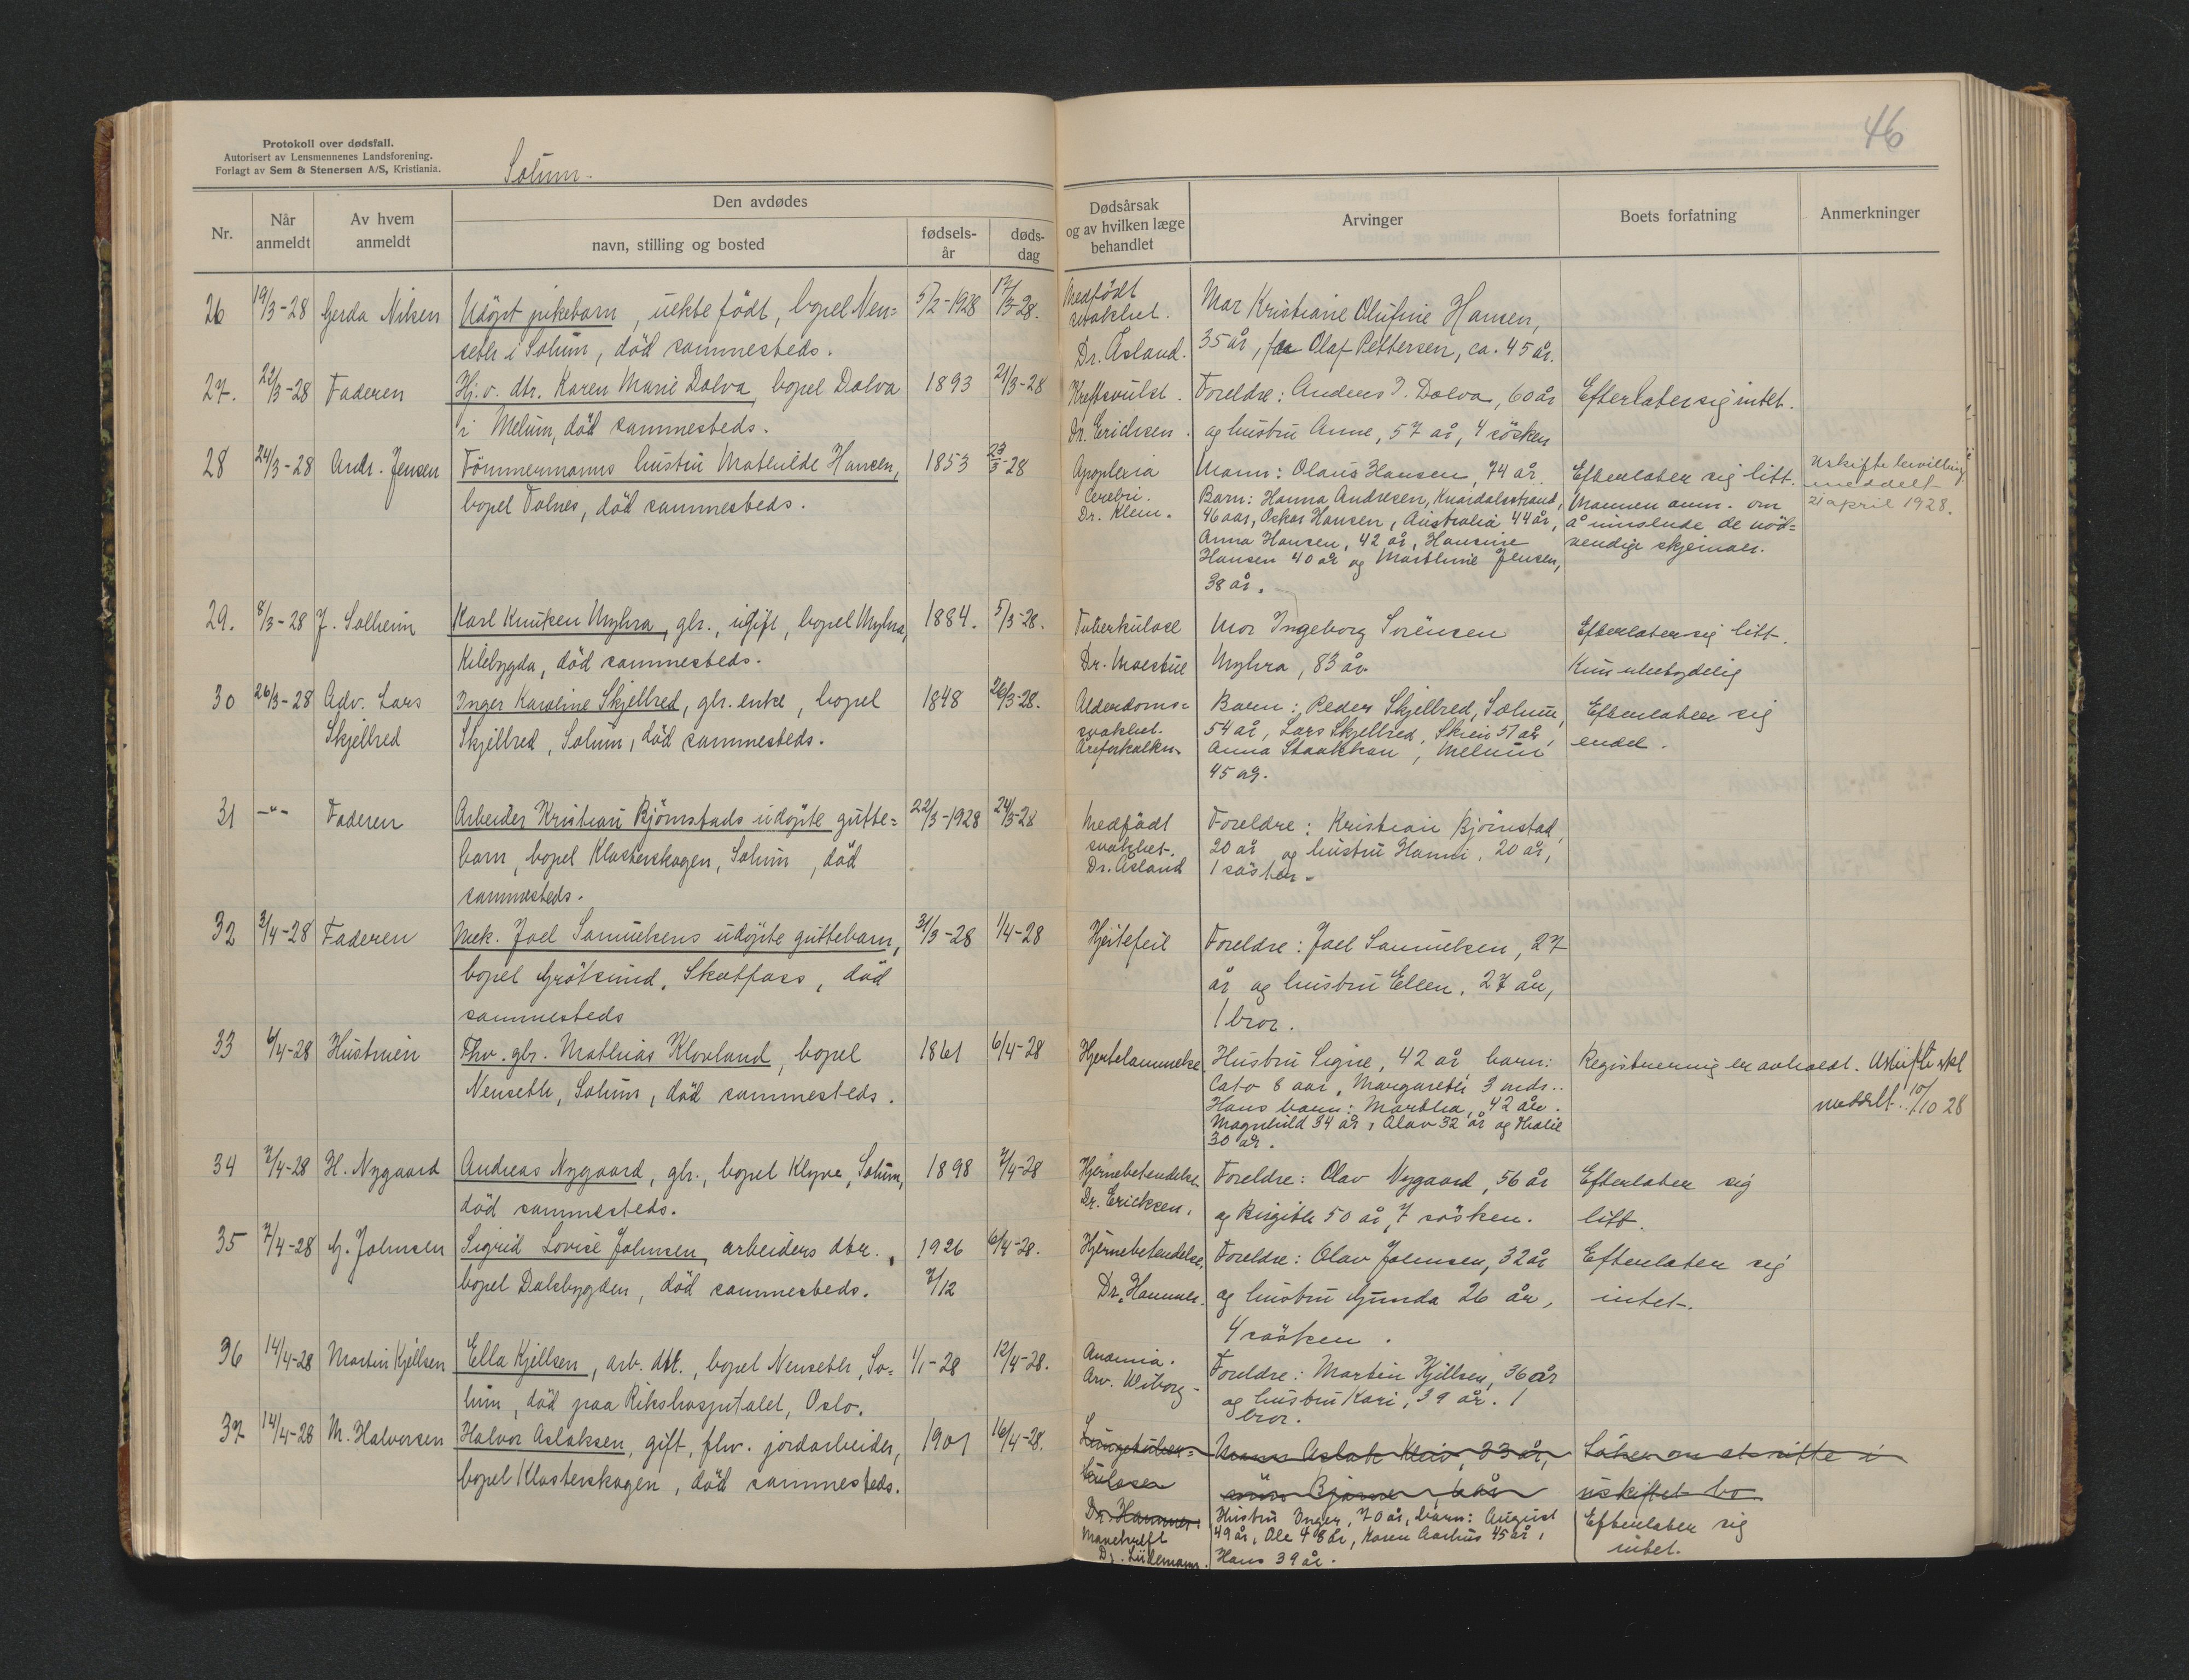 Protokoll over dødsfall.
Autorisert av Lensmennenes Landsforening.
Forlagt av Sem & Stenersen A/S, Kristiania.
Solum.
46
Nr.
Når anmeldt
Av hvem anmeldt
Den avdødes
navn, stilling og bosted
fødsels-år
døds-dag
Dødsårsak og av hvilken læge behandlet
Arvinger
Boets forfatning
Anmerkninger
26 19/3-28 Gerda Nilsen Udöpt pikebarn, uekte födt, bopel Nen= 5/2-1928 17/3-28.
seth i Solum, död sammesteds.
Medfödt
svakhet.
Dr. Åsland.
Mor Kristiane Olufine Hansen,
35 år, far Olaf Pettersen, ca. 45 år.
27. 22/3-28 Faderen Hj. v. dtr. Karen Marie Dolva, bopel Dolva 1893 21/3-28
i Melum, död sammesteds.
Kreftsvulst.
Dr. Erichsen.
Foreldre: Anders I. Dolva, 60 år
og hustru Anne, 57 år, 4 søsken
Efterlater sig intet.
28 24/3-28 Andr. Jensen Tömmermanns hustru Mathilde Hansen, 1853 23/3-28
bopel Tolnes, död sammesteds.
Apoplexia
Cerebri.
Dr. Klem.
Mann: Olaus Hansen, 74 år.
Barn: Hanna Andresen, Knardalsstrand,
46 aar, Oskar Hansen, Australia 44 år,
Anna Hansen, 42 år, Hansine
Hansen 40 år og Marthine Jensen,
38 år.
Efterlater sig litt.
Mannen anm. om
å innsende de nöd=
vendige skjemaer.
Uskiftebevilling
meddelt
21 april 1928.
29. 8/3-28 J. Solheim Karl Knutsen Myhra, gbr., ugift, bopel Myhra, 1884. 5/3-28.
Kilebygda, död sammesteds.
Tuberkulose
Dr. Moestue
Mor Ingeborg Sörensen
Myhra, 83 år
Efterlater sig litt.
Kun ubetydelig
30 26/3-28 Adv. Lars Inger Karoline Skjelbred, gbr. enke, bopel 1848 26/3-28.
Skjelbred Skjelbred, Solum, död sammesteds.
Alderdoms=
svakhet.
Åreforkalkn.
Barn: Peder Skjelbred, Solum,
54 år, Lars Skjelbred, Skien 51 år,
Anna Stokkan, Melum
45 år.
Efterlater sig
endel.
31 -"- Faderen Arbeider Kristian Björnstads udöpte gutte= 22/3-1928 24/3-28
barn, bopel Klosterskogen, Solum, död
sammesteds.
Medfödt
svakhet.
Dr. Åsland
Foreldre: Kristian Björnstad,
20 år og hustru Hanni, 20 år,
1 söster.
32 3/4-28 Faderen Mek. Joel Samuelsens udöpte guttebarn, 31/3-28 1/4-28
bopel Grötsund, Skotfoss, död
sammesteds
Hjertefeil
Foreldre: Joel Samuelsen, 27
år og hustru Ellen, 27 år,
1 bror.
33 6/4-28 Hustruen Fhv. gbr. Mathias Klovland, bopel 1861 6/4-28
Nenseth, Solum, död sammesteds.
Hjertelammelse
Hustru Signe, 42 år, barn:
Cato 8 aar, Margareth 3 mdr..
Hans barn: Martha, 42 år.
Magnhild 34 år, Olav 32 år og
30 år.
Registrering er avholdt. Uskifte
meddelt. 10/10 28
34 7/4-28 H. Nygaard Andreas Nygaard, gbr., bopel Klyve, Solum, 1898 7/4-28
död sammesteds.
Hjernebetendelse.
Dr. Ericksen.
Foreldre: Olav Nygaard, 56 år
og Birgith 50 år, 7 søsken.
Efterlater sig
litt.
35 7/4-28 G. Johnsen Sigrid Lovise Johnsen, arbeiders dtr., 1926 6/4-28.
bopel Dalsbygden, död sammesteds. 7/12
Hjernebetendelse.
Dr. Hammer.
Foreldre: Olav Johnsen, 32 år
og hustru Gunda 26 år,
4 søsken.
Efterlater sig
intet.
36 14/4-28 Martin Kjellsen Ella Kjellsen, arb. dtr., bopel Nenseth, So= 1/1-28 12/4-28.
lum, död paa Rikshospitalet, Oslo.
Anæmia.
Arv. Wiborg.
Foreldre: Martin Kjellsen, 36 år
og hustru Kari, 39 år. 1
bror.
37 14/4-28 M. Halvorsen Halvor Aslaksen, gift, fhv. jordarbeider, 1901 16/4-28.
bopel Klosterskogen, död sammesteds.
Lungetuber=
kulose
Dr. Hammer.
Mavekreft
Mann Aslak Kleiv, 33 år,
sönn Bjarne, 6 år
Hustru Inger, 70 år, barn: August
49 år, Ole 48 år, Karen Aarhus 45 år,
Hans 39 år.
Söker om at sitte i
uskiftet bo
Efterlater sig
intet.